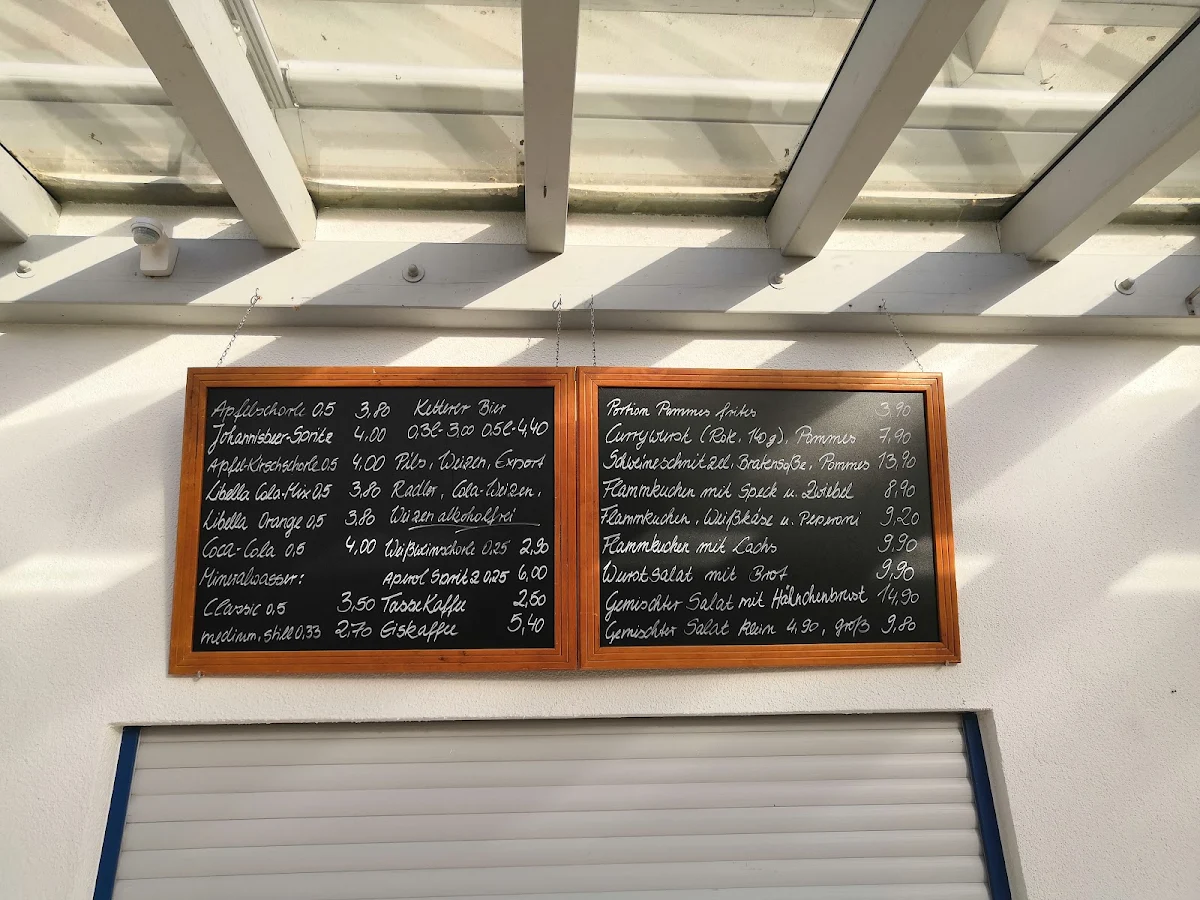 Apfelschorle 0,5 3,80
Johannisbeer-Spritz 4,00
Apfel-Kirschschorle 0,5 4,00
Libella Cola-Mix 0,5 3,80
Libella Orange 0,5 3,80
Coca-Cola 0,5 4,00
Mineralwasser:
Classic 0,5 3,50
medium, still 0,33 2,70
Ketterer Bier
0,3l-3,00 0,5l-4,40
Pils, Weizen, Export
Radler, Cola-Weizen,
Weizen alkoholfrei
Weißweinschorle 0,25 2,90
Aperol Spritz 0,25 6,00
Tasse Kaffee 2,60
Eiskaffee 5,40
Portion Pommes frites 3,90
Currywurst (Rok. 140g), Pommes 7,90
Schweineschnitzel, Bratensoße, Pommes 13,90
Flammkuchen mit Speck u. Zwiebel 8,90
Flammkuchen, Weißkäse u. Peperoni 9,20
Flammkuchen mit Lachs 9,90
Wurstsalat mit Brot 9,90
Gemischter Salat mit Hähnchenbrust 14,90
Gemischter Salat klein 4,90, groß 9,80